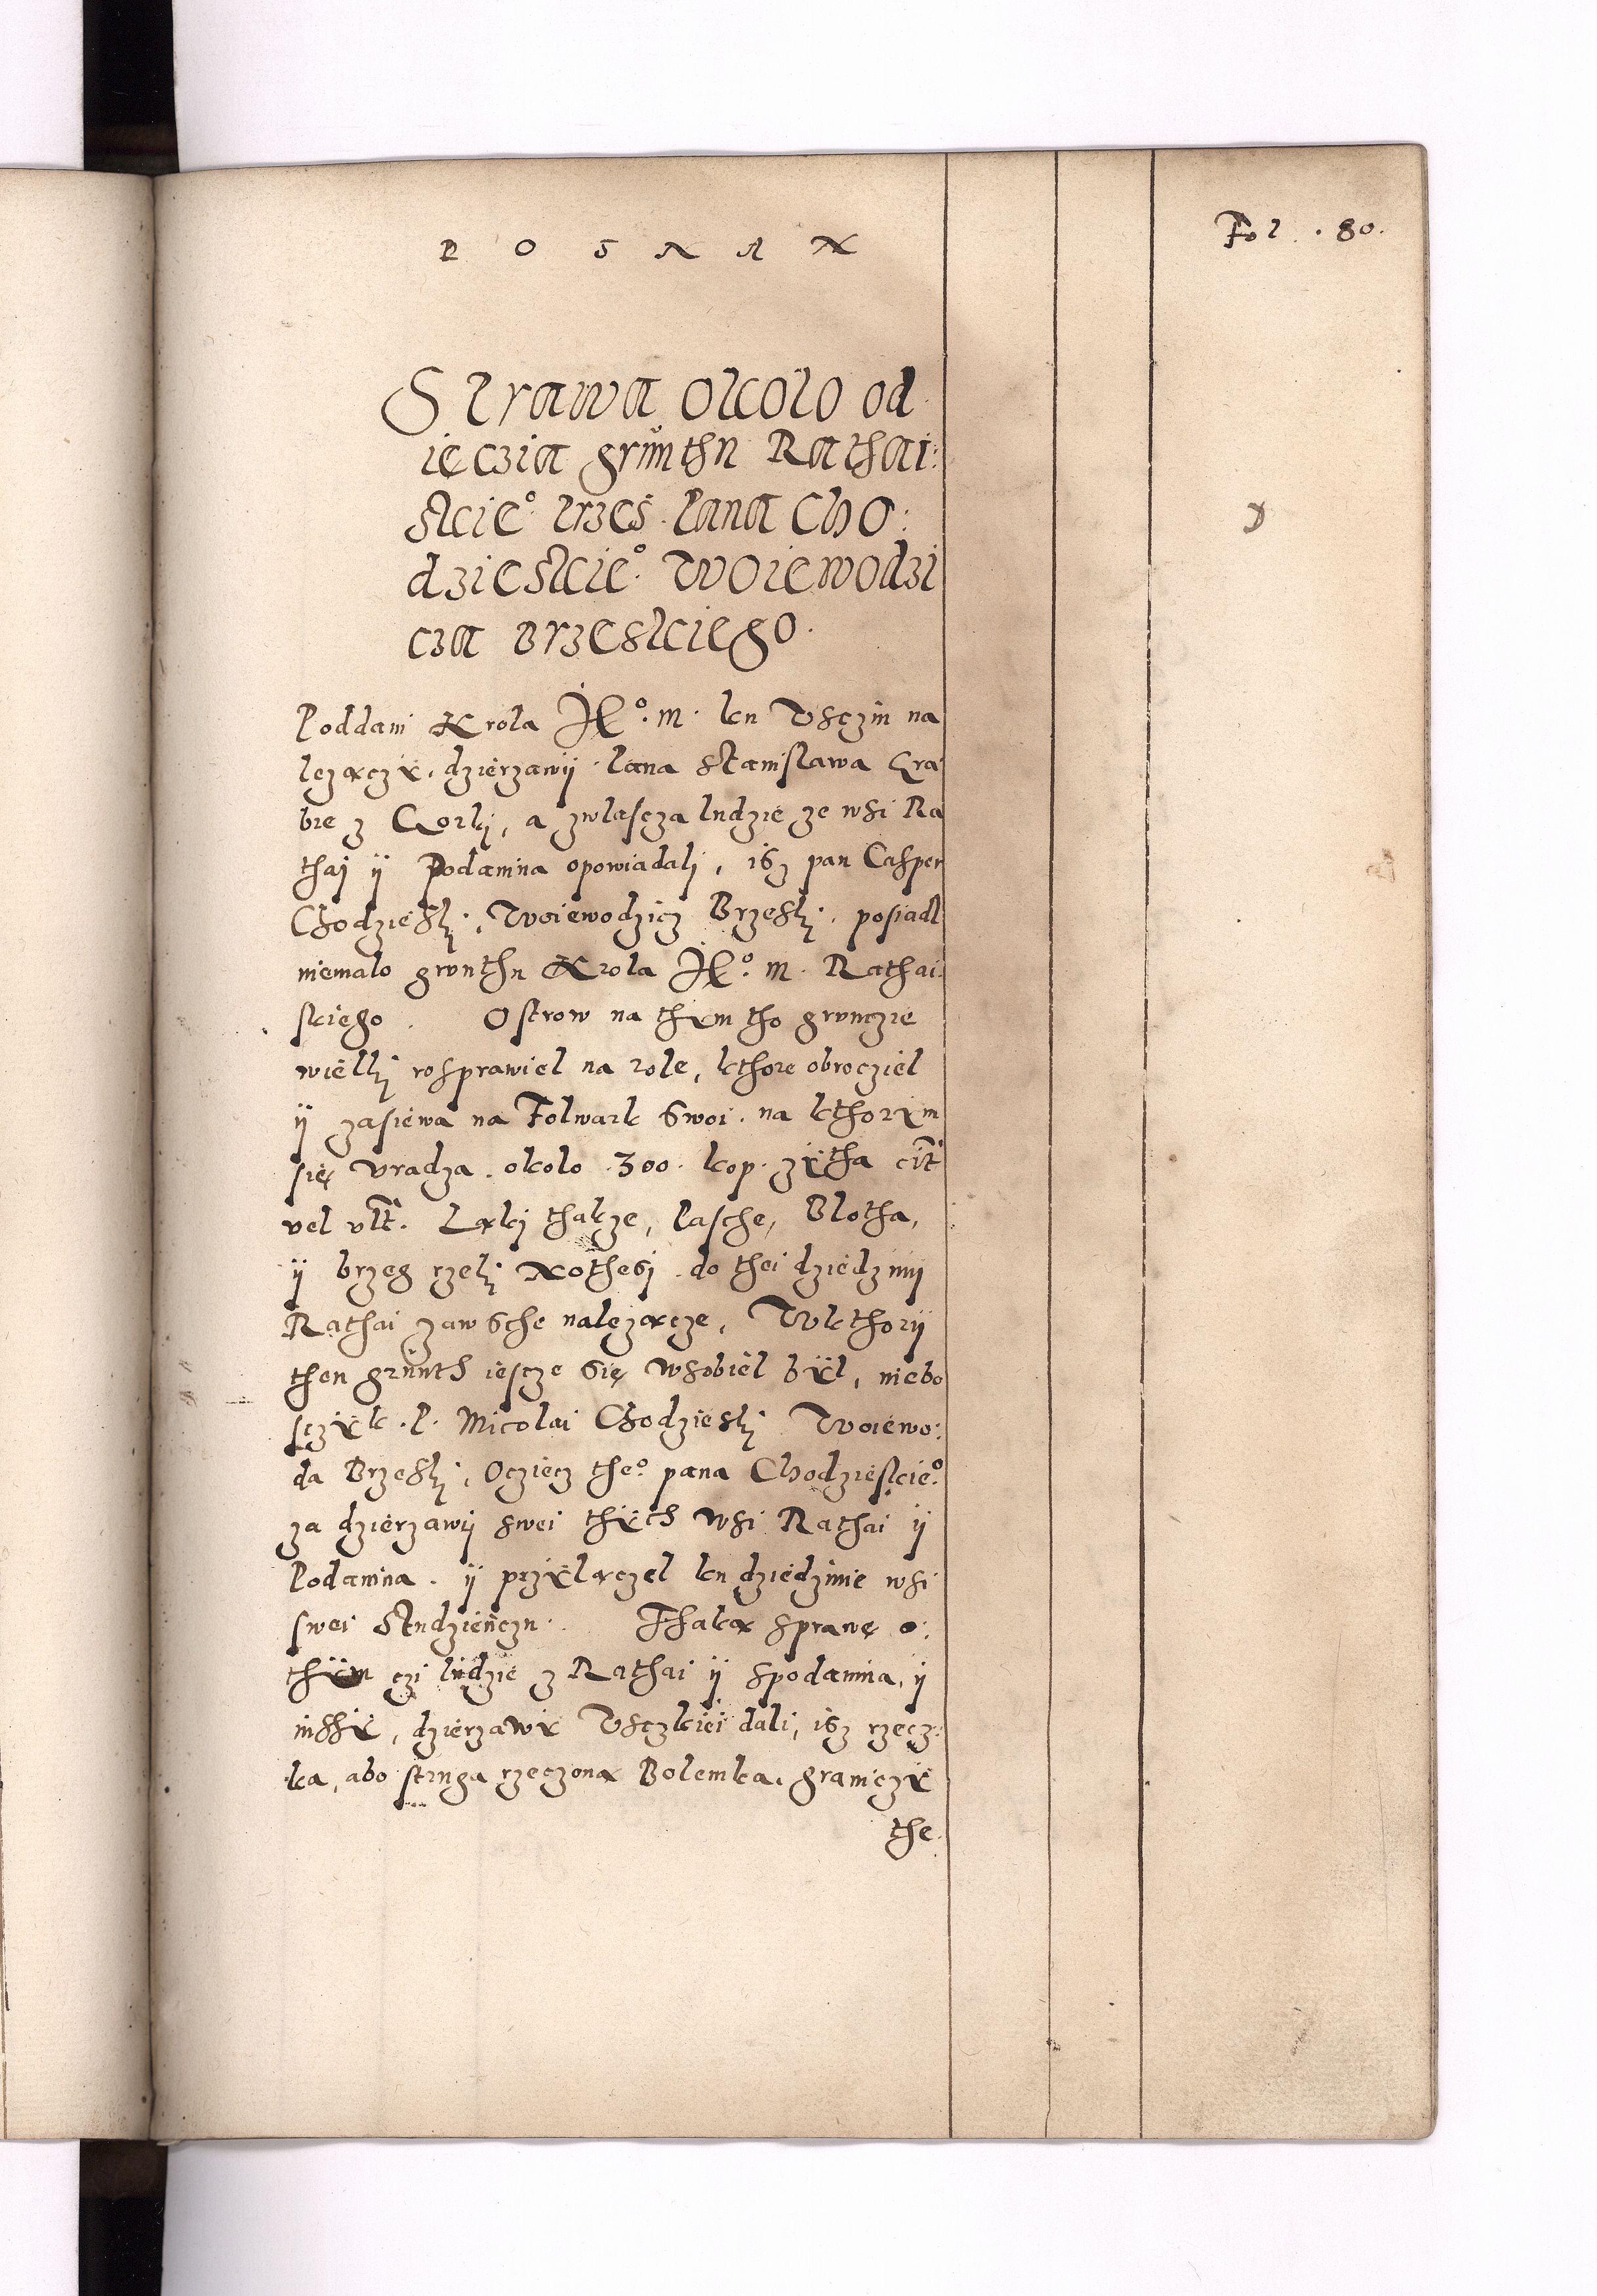 POSNAN
Fol. 80.
Sprawa okolo od
ięczia grunthu Rathai:
skie° przes Pana Cho:
dzieskie° Woiewodzi
cza Brzeskiego.
Poddani Krola JK°. M. ku Vsczin na
lezączy. dzierzawÿ Pana Stanislawa Gra
bie z Gorki, a zwlascza ludzie ze wsi Ra
thaj ÿ Podanina opowiadali, isz pan Casper
Chodzieski, Woiewodzicz Brzeski. posiadl
niemalo grvnthu Krola JK°. M. Rathai
skiego. Ostrow na thym tho grvnczie
wielki rosprawiel na role, kthore obrocziel
ÿ zasiewa na Folwark swoi. na kthorym
się vradza. okolo .300. kop. zytha cit
vel vlt. Ląki thakze, Pasche, Blotha,
ÿ brzeg rzeki Nothesi do thei dziedzinÿ
Rathai zawsche nalezącze, Wkthorÿ
then grunth iescze się wrobiel bÿl, niebo
sczyk. P. Micolai Chodzieski Woiewo:
da Brzeski, Ocziecz the° pana Chodzieskie°
za dzierzawÿ swei thych wsi Rathai ÿ
Podanina. ÿ przylączel ku dziedzinie wsi
swei Studzienczu. Thaką sprawę o:
thym czi ludzie z Rathai ÿ spodanina, ÿ
inssÿ, dzierzawy Vsczkiei dali, isz rzecz:
ka, abo struga rzeczona Bolemka. graniczy
the.